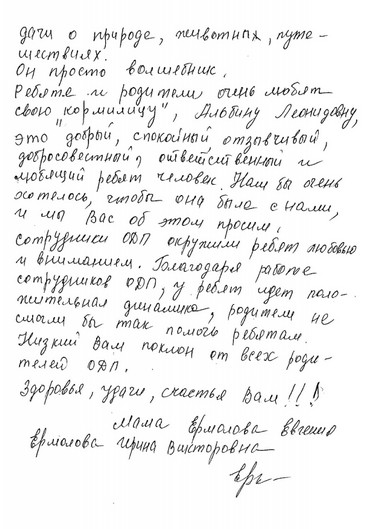 дачи о природе, животных, путе-
шествиях.
Он просто волшебник.
Ребята и родители очень любят
свою "кормилицу", Альбину Леонидовну,
это добрый, спокойный отзывчивый,
добросовестный, ответственный и
любящий ребят человек. Нам бы очень
хотелось, чтобы она была с нами,
и мы Вас об этом просим.
Сотрудники ОДП окружили ребят любовью
и вниманием. Благодаря работе
сотрудников ОДП, у ребят идет поло-
жительная динамика, родители не
смогли бы так помочь ребятам.
Низкий Вам поклон от всех роди-
телей ОДП.
Здоровья, удачи, счастья Вам!!!
Мама Ермолова Евгения
Ермолова Ирина Викторовна